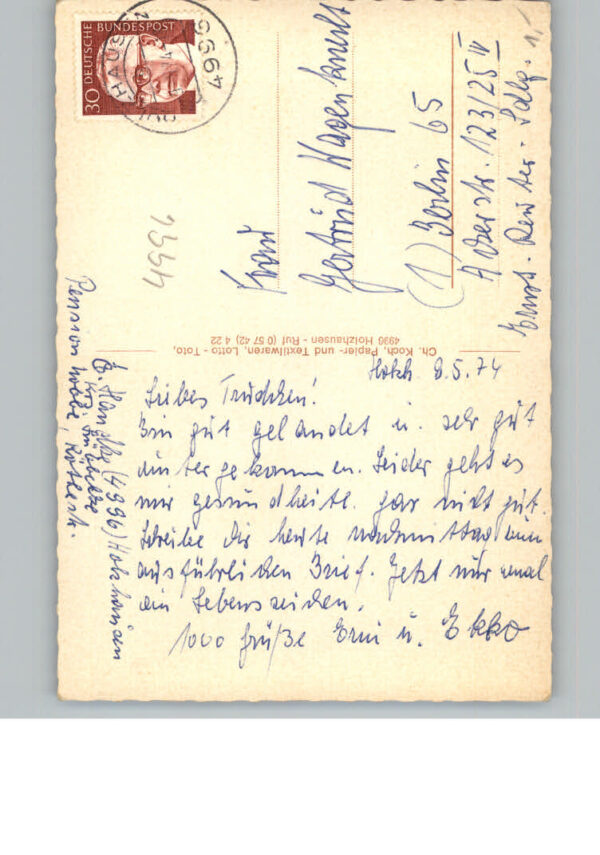 30
DEUTSCHE
BUNDESPOST
4994
Frau
Gertrud Wagenknecht
(1) Berlin 65
Ackerstr. 123/125 IV
Ernst-Reuter-Sdlg.
4996
Ch. Koch, Papier- und Textilwaren, Lotto - Toto,
4996 Holzhausen - Ruf (0 57 42) 4 22
Holzh. 8.5.74
Liebes Trudchen!
Bin gut gelandet u. sehr gut
untergekommen. Leider geht es
mir gesundheitl. gar nicht gut.
Schreibe Dir heute nachmittag einen
ausführlichen Brief. Jetzt nur mal
ein Lebenszeichen.
1000 Grüße Erni u. Ekko
(4996) Holzhausen
Kr. Lübbecke
Pension